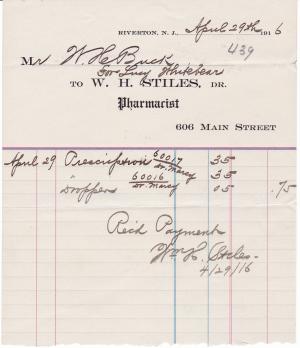 RIVERTON, N. J., April 29th 1916
439
Mr W. H. Buck
For Lucy Whitebear
TO W. H. STILES, DR.
Pharmacist
606 MAIN STREET
April 29 Prescription 60017 Dr. Marcy 35
" 60016 Dr. Marcy 35
Droppers 05 .75
Rec'd Payment
Wm H. Stiles
4/29/16